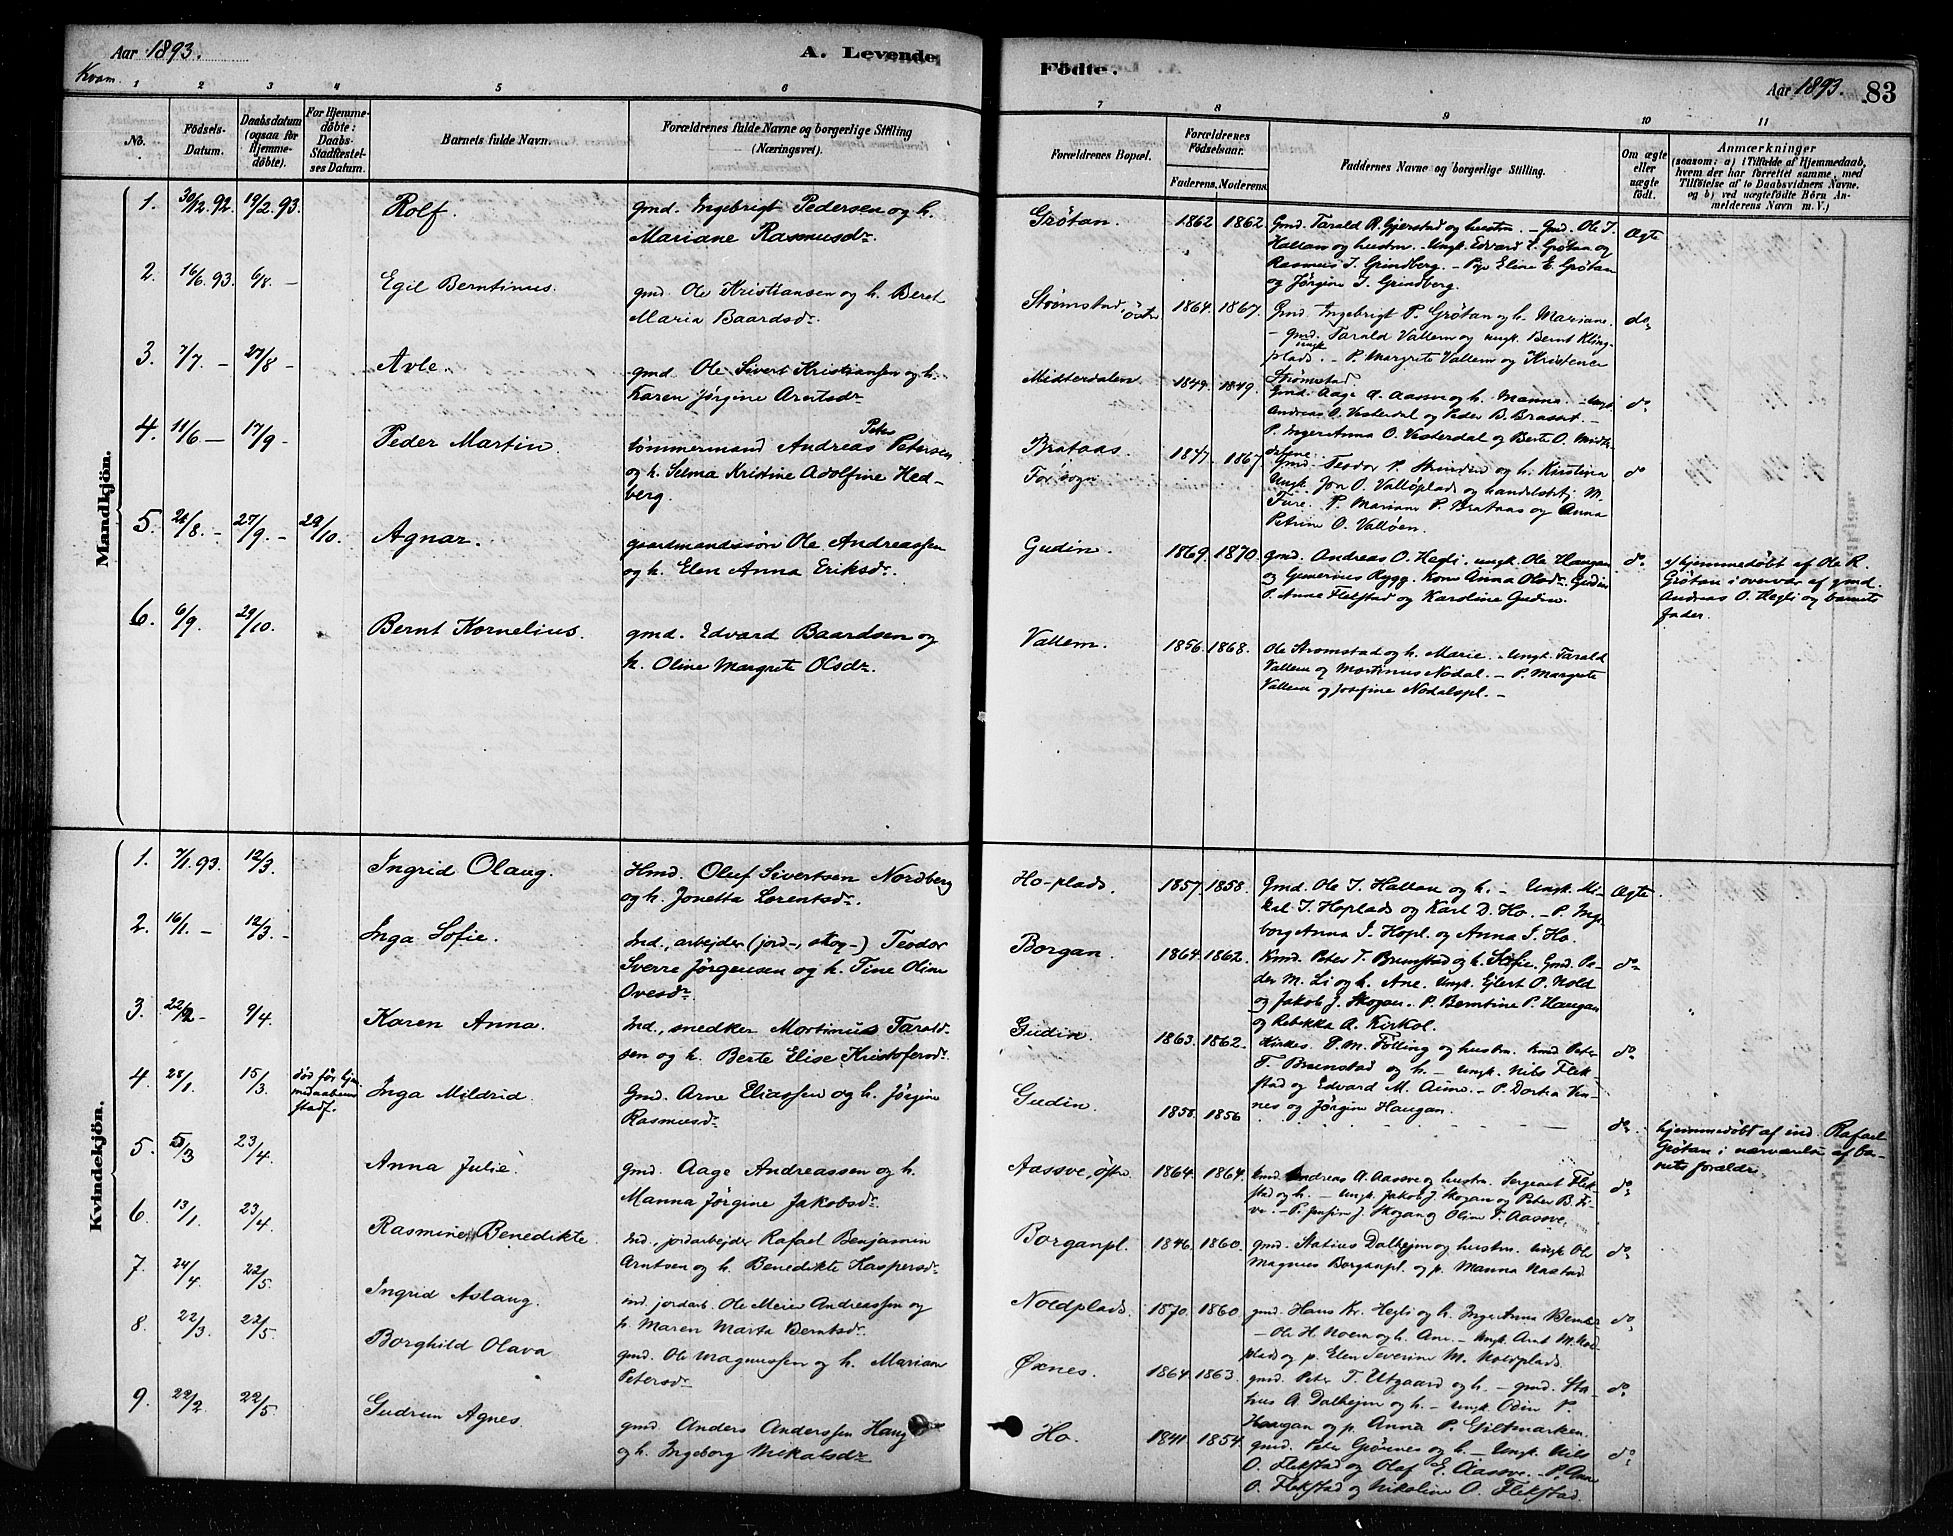 Aar 1893.
A. Levende
Kvam.
1 2 3 4 5 6
No.
Födsels-Datum.
Daabsdatum (ogsaa for Hjemmedöbte).
For Hjemmedöbte: Daabs-Stadfæstelses Datum.
Barnets fulde Navn.
Forældrenes fulde Navne og borgerlige Stilling (Næringsvei).
Mandkjön.
1. 30/12 92. 19/2 93. Rolf. gmd. Ingebrigt Pedersen og h.
Mariane Rasmusdr.
2. 16/6 93. 6/8 — Egil Berntinus. gmd. Ole Kristiansen og h. Beret
Maria Baardsdr.
3. 7/7 — 27/8 — Avle. gmd. Ole Sivert Kristiansen og h.
Karen Jørgine Arntsdr
4. 11/6 — 17/9 — Peder Martin. tömmermand Andreas Peter Petersen
og h. Selma Kristine Adolfine Hed-
berg.
5. 26/8 — 27/9 — 29/10. Agnar. gaardmandssøn Ole Andreassen
og h. Elen Anna Eriksdr.
6. 6/9. 29/10. Bernt Kornelius. gmd. Edvard Baardsen og
h. Oline Margrete Olsdr.
Kvindekjön.
1. 7/1 93. 12/3. Ingrid Olaug. Hmd. Oluf Sivertsen Nordberg
og h. Jonetta Lorentsdr.
2. 16/1 — 12/3 — Inga Sofie. Ind., arbejder (jord-, skog-) Teodor
Sverre Jørgensen og h. Tine Oline
Ovesdr
3. 22/2 — 9/4. Karen Anna. Ind., snedker Mortinus Tarald-
sen og h. Berte Elise Kristofersdr.
4. 28/1. 15/3. død før hjemmedaabens stadf. Inga Mildrid. Gmd. Arne Eliassen og h. Jørgine
Rasmusdr
5. 5/3 23/4. Anna Julie. gmd. Aage Andreassen og h.
Manna Jørgine Jakobsdr
6. 13/1. 23/4. Rasmine Benedikte. Ind., jordarbejder Rafael Benjamin
Arntsen og h. Benedikte Kaspersdr
7. 24/4 22/5. Ingrid Aslaug. ind. jordarb. Ole Meier Andreassen og
h. Maren Marta Berntsdr.
8. 22/3. 22/5. Borghild Olava. gmd. Ole Magnussen og h. Mariane
Petersdr
9. 22/2 22/5. Gudrun Agnes. gmd. Anders Anderssen Haug
og h. Ingeborg Mekalsdr
Födte.
Aar 1893. 83
7 8 9 10 11
Forældrenes Bopæl.
Forældrenes Födselsaar.
Faderens. Moderens.
Faddernes Navne og borgerlige Stilling.
Om ægte eller uægte födt.
Anmærkninger
(saasom: a) i Tilfælde af Hjemmedaab,
hvem der har forrettet samme, med
Tilföielse af to Daabsvidners Navne.
og b) ved uægtefödte Börn An-
melderens Navn m. V.)
Grôtan. 1862 1862. Gmd. Tarald R. Gjerstad og hustru. — Gmd. Ole T. Ægte
Hallam og hustru. Ungk. Edvard E. Grôtan og
Rasmus I. Grindberg. — Pige Eline E. Grôtan
og Jørgine I. Grindberg.
Strømstad, östre 1864. 1867. Gmd. Ingebrigt P. Grôtan og h. Mariane. do
— gmd. Tarald Vallem og ungk. Bernt Kling-
plads. — P. Margrete Vallem og Kristence
Strømstad.
Midterdalen 1849. 1849. Gmd. Aage A. Aasve og h. Manna. — Ungk. do
Andreas O. Vesterdal og Peder B. Brassit. —
P. Inger Anna O. Vesterdal og Berte O. Midt-
Brataas. 1847. 1867. Gmd. Teodor P. Strinden og h. Karstina do
For sogn Ungk. Jon O. Vallöplads og handelsbetj. M.
Ture. P. Mariane P. Brataas og Anna
Petrine O. Vallöen.
Gudin. 1869. 1870. gmd. Andreas O. Hegli. ungk. Ole Haugan do hjemmedöbt af Ole R.
og Gunerius Rygg. Kone Anna Olsdr. Gudin Grôtan i overvær af gmd.
P. Anne Flekstad og Karoline Gudin. Andreas O. Hegli og barnets
fader.
Vallem. 1856. 1868. Ole Strømstad og h. Marie. Ungk. Tarald
Vallem og Mortinus Nodal. — P. Margrete
Vallem og Josefine Nodalspl. —
Ho-plads. 1857. 1858. Gmd. Ole T. Hallan og h. — Ungk. Mi- Ægte
kal I. Hoplads og Karl D. Ho. — P. Inge-
borg Anna I. Hopl. og Anna I. Ho.
Borgan. 1864. 1862. Kmd. Peter T. Brunstad og h. Sofie. Gmd. Pe- do
der M. Li og h. Ane. Ungk. Ejlert O. Nold
og Jakob J. Skogan. P. Berntine P. Haugan
og Rebekka A. Kirkol.
Gudin. 1863. 1862. Kirkes. P. M. Følling og hustru. Kmd. Peter do
T. Brunstad og h. — Ungk. Nils Flek-
stad og Edvard M. Aune. — P. Dortea Vin-
nes og Jørgine Haugan.
Gudin. 1858. 1856 do. hjemmedöbt af ind. Rafael
Grôtan i nærværelse af bar-
nets forældre.
Aassve, östre 1864. 1864. Gmd. Andreas A. Aassve og hustru. Sergeant Flek- do
stad og h. — Ungk. Jakob J. Skogan og Peter B. Fi-
ve. — P. Josefine J. Skogan og Oline T. Aassve.
Borganpl. 1846. 1860. gmd. Statius Dalhejm og hustru. Ungk. Ole do
Magnus Borganpl. og p. Manna Nastad.
Noldplads. 1870. 1860 gmd. Hans Kr. Hegli og h. Inger Anna Berntsdr do
— Ole H. Noem og h. Ane. — Ungk. Arnt M. Nold-
plads og p. Elen Severine M. Noldplads.
Øxnes. 1864. 1863. gmd. Peter T. Utgaard og h. — gmd. Sta- do
tius A. Dalhejm og h. — Ungk. Odin P.
Haugan og p. Anna P. Giltmarken.
Ho. 1841. 1854. gmd. Peter Grönnes og h. — Ungk. Nils do
O. Flekstad og Olaf E. Aassve. — P. Ane
O. Flekstad og Nikoline O. Flekstad.